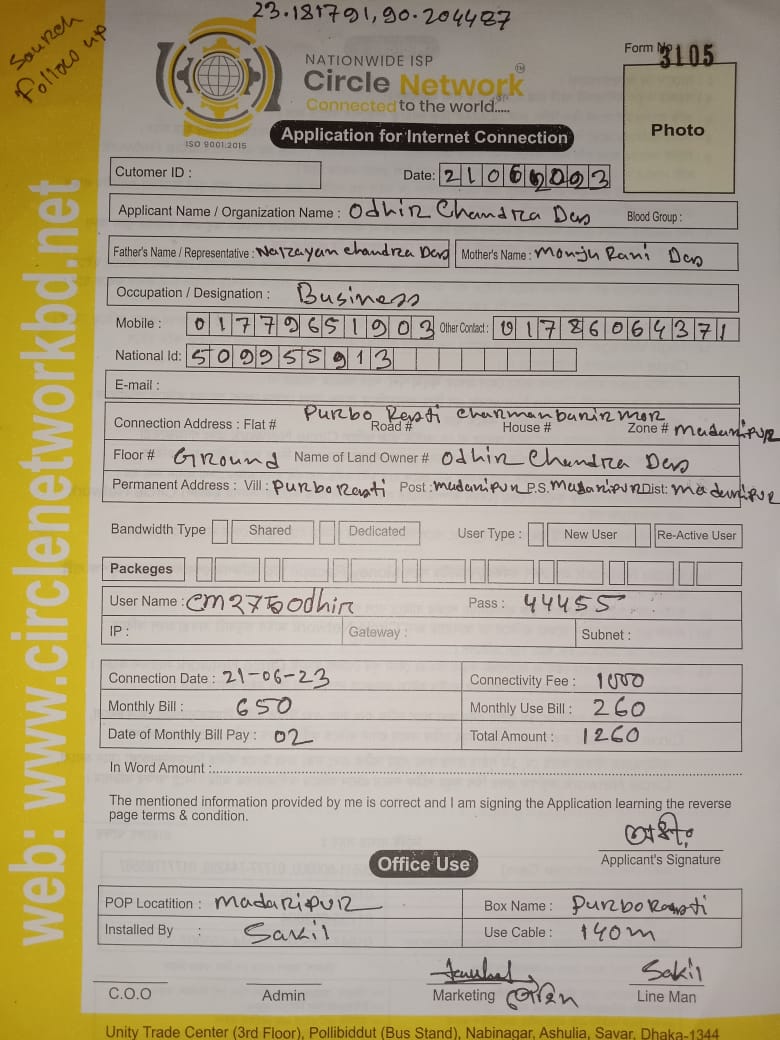 23.181791,90.204487
Sourch
Follow up
NATIONWIDE ISP
Circle Network
Connected to the world.....
ISO 9001:2015
Form No 3105
Photo
Application for Internet Connection
Cutomer ID :
Date: 21062023
Applicant Name / Organization Name : Odhir Chandra Das Blood Group :
Father's Name / Representative : Narayan Chandra Das Mother's Name : Monju Rani Das
Occupation / Designation : Business
Mobile : 01779651903 Other Contact : 01786064371
National Id: 5099555913
E-mail :
Purbo Rasti Charmanbarir mor
Connection Address : Flat # Road # House # Zone # Madaripur
Floor # Ground Name of Land Owner # Odhir Chandra Das
Permanent Address : Vill : Purbo Rasti Post : Madaripur P.S. Madaripur Dist: Madaripur
Bandwidth Type Shared Dedicated User Type : New User Re-Active User
Packeges
User Name : Pass : 44455
IP : Gateway : Subnet :
Connection Date : 21-06-23 Connectivity Fee : 1000
Monthly Bill : 650 Monthly Use Bill : 260
Date of Monthly Bill Pay : 02 Total Amount : 1260
In Word Amount :
The mentioned information provided by me is correct and I am signing the Application learning the reverse
page terms & condition.
Applicant's Signature
Office Use
POP Locatition : Madaripur Box Name : Purbo Rasti
Installed By : Sakil Use Cable : 140m
Sakil
C.O.O Admin Marketing Line Man
Unity Trade Center (3rd Floor), Pollibiddut (Bus Stand), Nabinagar, Ashulia, Savar, Dhaka-1344
web: www.circlenetworkbd.net